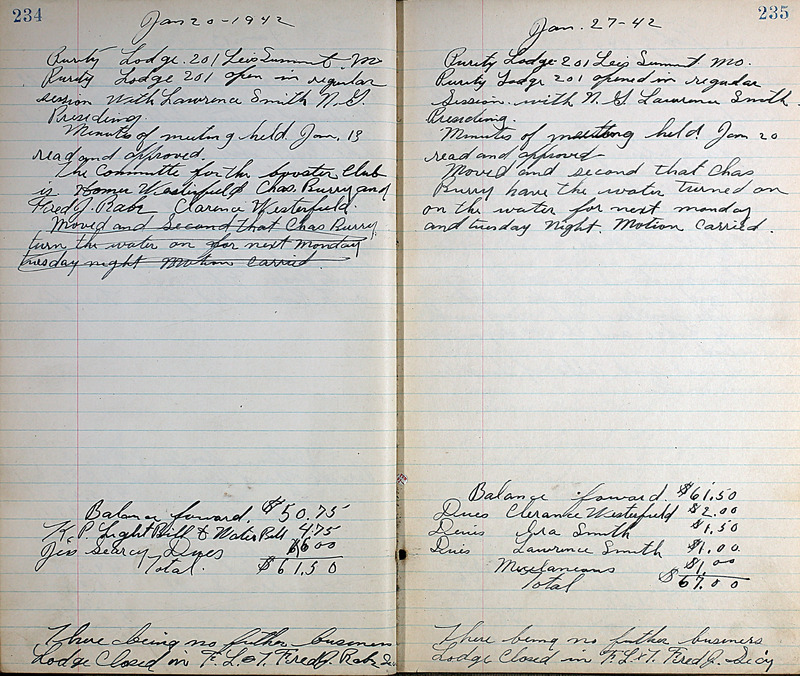 234
Jan 20-1942
Purity Lodge. 201 Leis Summit Mo
Purity Lodge 201 open in regular
session with Lawrence Smith N. G.
Presiding.
Minutes of meeting held Jan. 13
read and approved.
The Committe for the booster Club
is Homer Westerfield Chas. Burry and
Fred J. Rabe Clarence Westerfield
Moved and Second that Chas Burry
turn the water on for next monday
tuesday night Motion Carried.
Balance foward. $50.75
K. P. Light Bill & Water Bill 4.75
Jim Searcy Dues $6.00
Total. $61.50
There being no futher business
Lodge Closed in F. L & T. Fred J. Rabe Sec
235
Jan. 27-42
Purity Lodge 201 Leis Summit Mo.
Purity Lodge 201 opened in regular
Session. with N. G Lawrence Smith
Presiding.
Minutes of meeting held Jan 20
read and approved
Moved and second that Chas
Burry have the water turned on
on the water for next monday
and tuesday Night. Motion Carried.
Balance foward. $61.50
Dues Clerance Westerfield $2.00
Dewis Ira Smith $1.50
Duis Lawrence Smith $1.00
Miscelaneous $1.00
Total $67.00
There being no futher business
Lodge Closed in F. L & T. Fred J. Secy